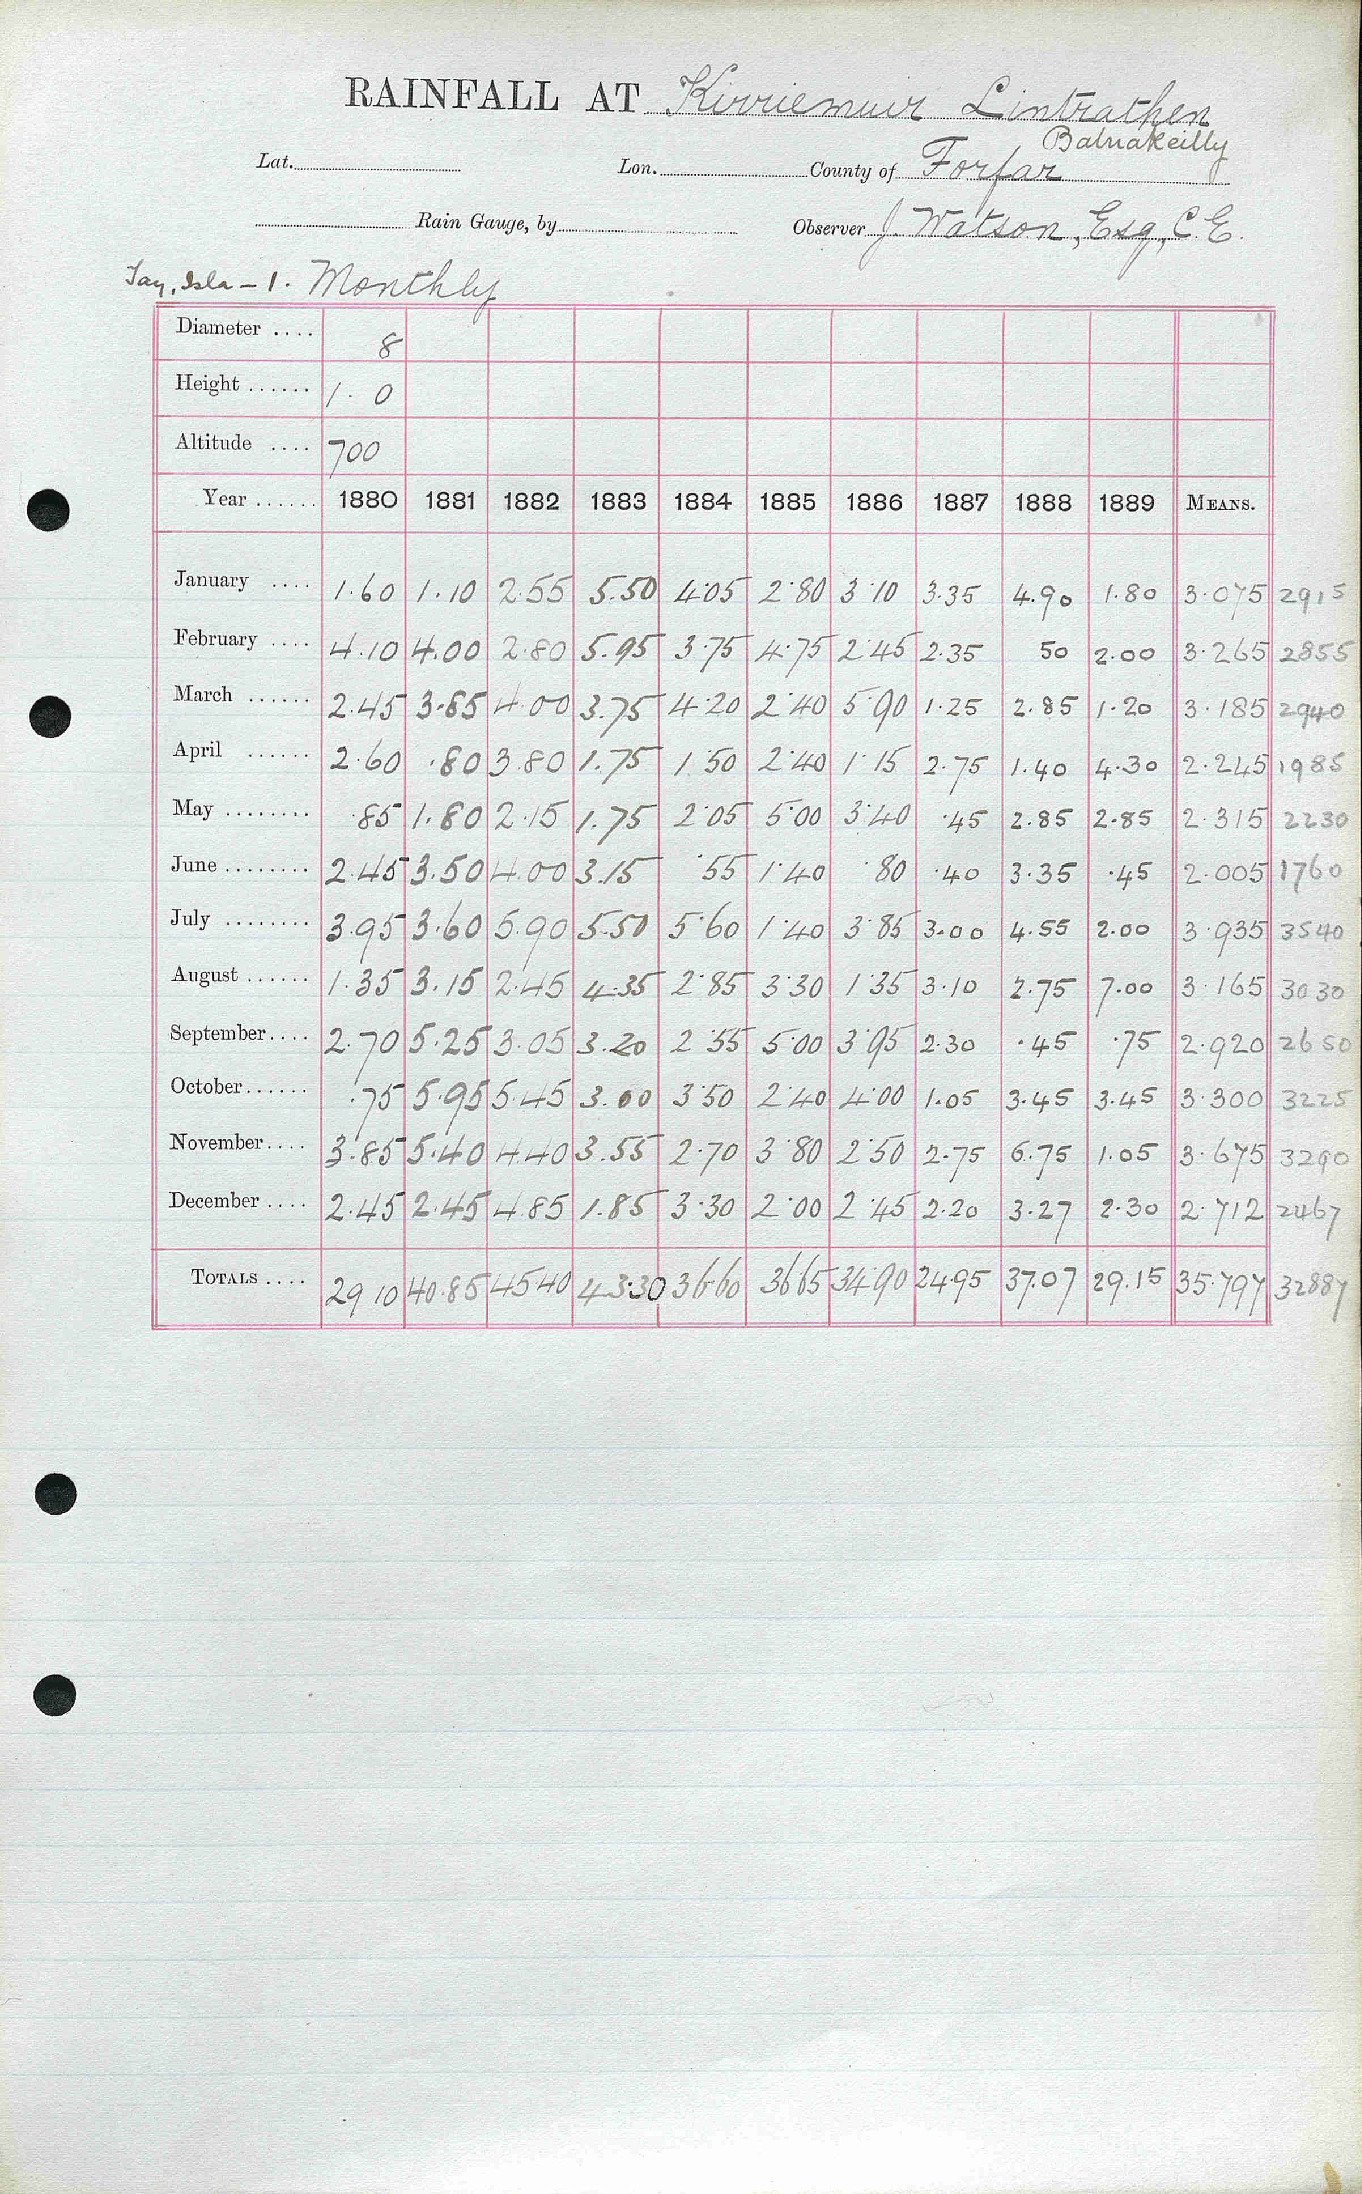 RAINFALL AT Kirriemuir Lintrathen
Balnakeilly
Lat. Lon. County of Forfar
Rain Gauge, by Observer J. Watson, Esq, C.E.
Tay, Isla - 1. Monthly
Diameter .... 8
Height ...... 1. 0
Altitude .... 700
Year ...... 1880 1881 1882 1883 1884 1885 1886 1887 1888 1889 MEANS.
January .... 1.60 1.10 2.55 5.50 4.05 2.80 3.10 3.35 4.90 1.80 3.075 2915
February .... 4.10 4.00 2.80 5.95 3.75 4.75 2.45 2.35 50 2.00 3.265 2855
March ...... 2.45 3.85 4.00 3.75 4.20 2.40 5.90 1.25 2.85 1.20 3.185 2940
April ...... 2.60 .80 3.80 1.75 1.50 2.40 1.15 2.75 1.40 4.30 2.245 1985
May ........ .85 1.80 2.15 1.75 2.05 5.00 3.40 .45 2.85 2.85 2.315 2230
June ........ 2.45 3.50 4.00 3.15 .55 1.40 .80 .40 3.35 .45 2.005 1760
July ........ 3.95 3.60 5.90 5.50 5.60 1.40 3.85 3.00 4.55 2.00 3.935 3540
August ...... 1.35 3.15 2.45 4.35 2.85 3.30 1.35 3.10 2.75 7.00 3.165 3030
September .... 2.70 5.25 3.05 3.20 2.55 5.00 3.95 2.30 .45 .75 2.920 2650
October ...... .75 5.95 5.45 3.00 3.50 2.40 4.00 1.05 3.45 3.45 3.300 3225
November .... 3.85 5.40 4.40 3.55 2.70 3.80 2.50 2.75 6.75 1.05 3.675 3290
December .... 2.45 2.45 4.85 1.85 3.30 2.00 2.45 2.20 3.27 2.30 2.712 2467
TOTALS .... 29 10 40.85 45 40 43.30 36.60 36 65 34.90 24.95 37.07 29.15 35.797 32887